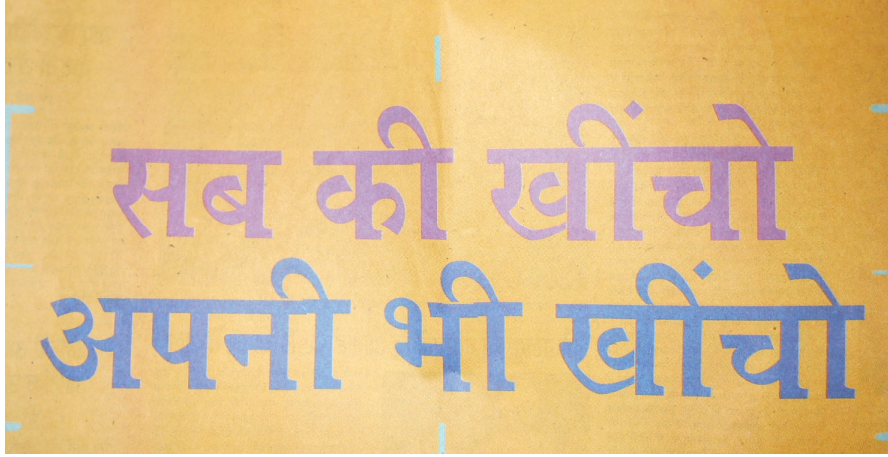 सब की खींचो
अपनी भी खींचो